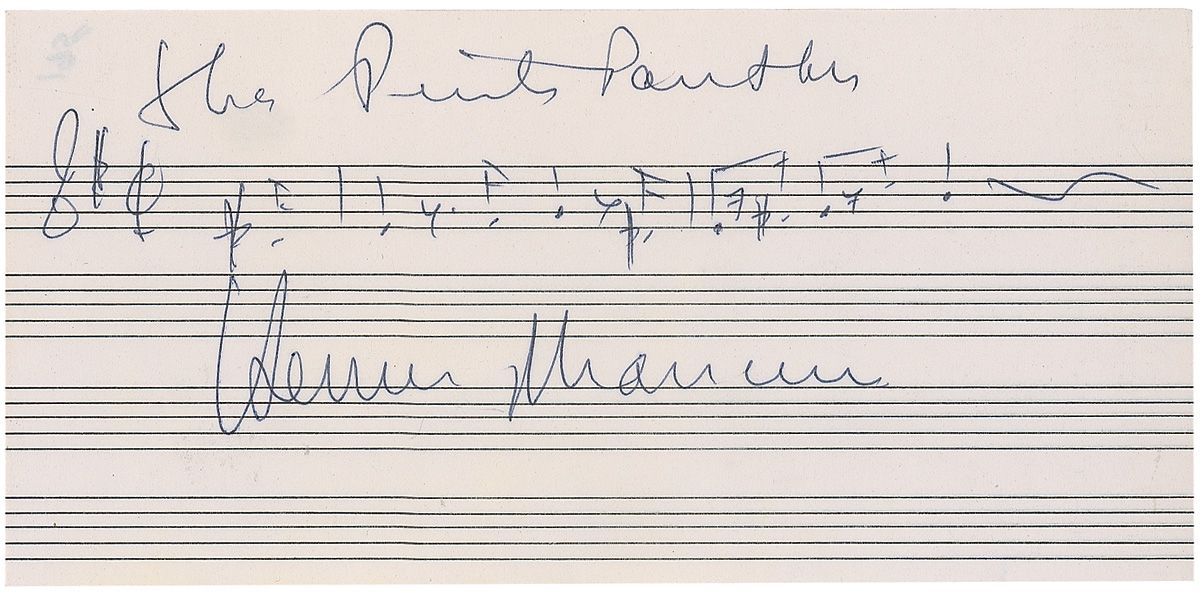 The Pink Panther
Henry Mancini